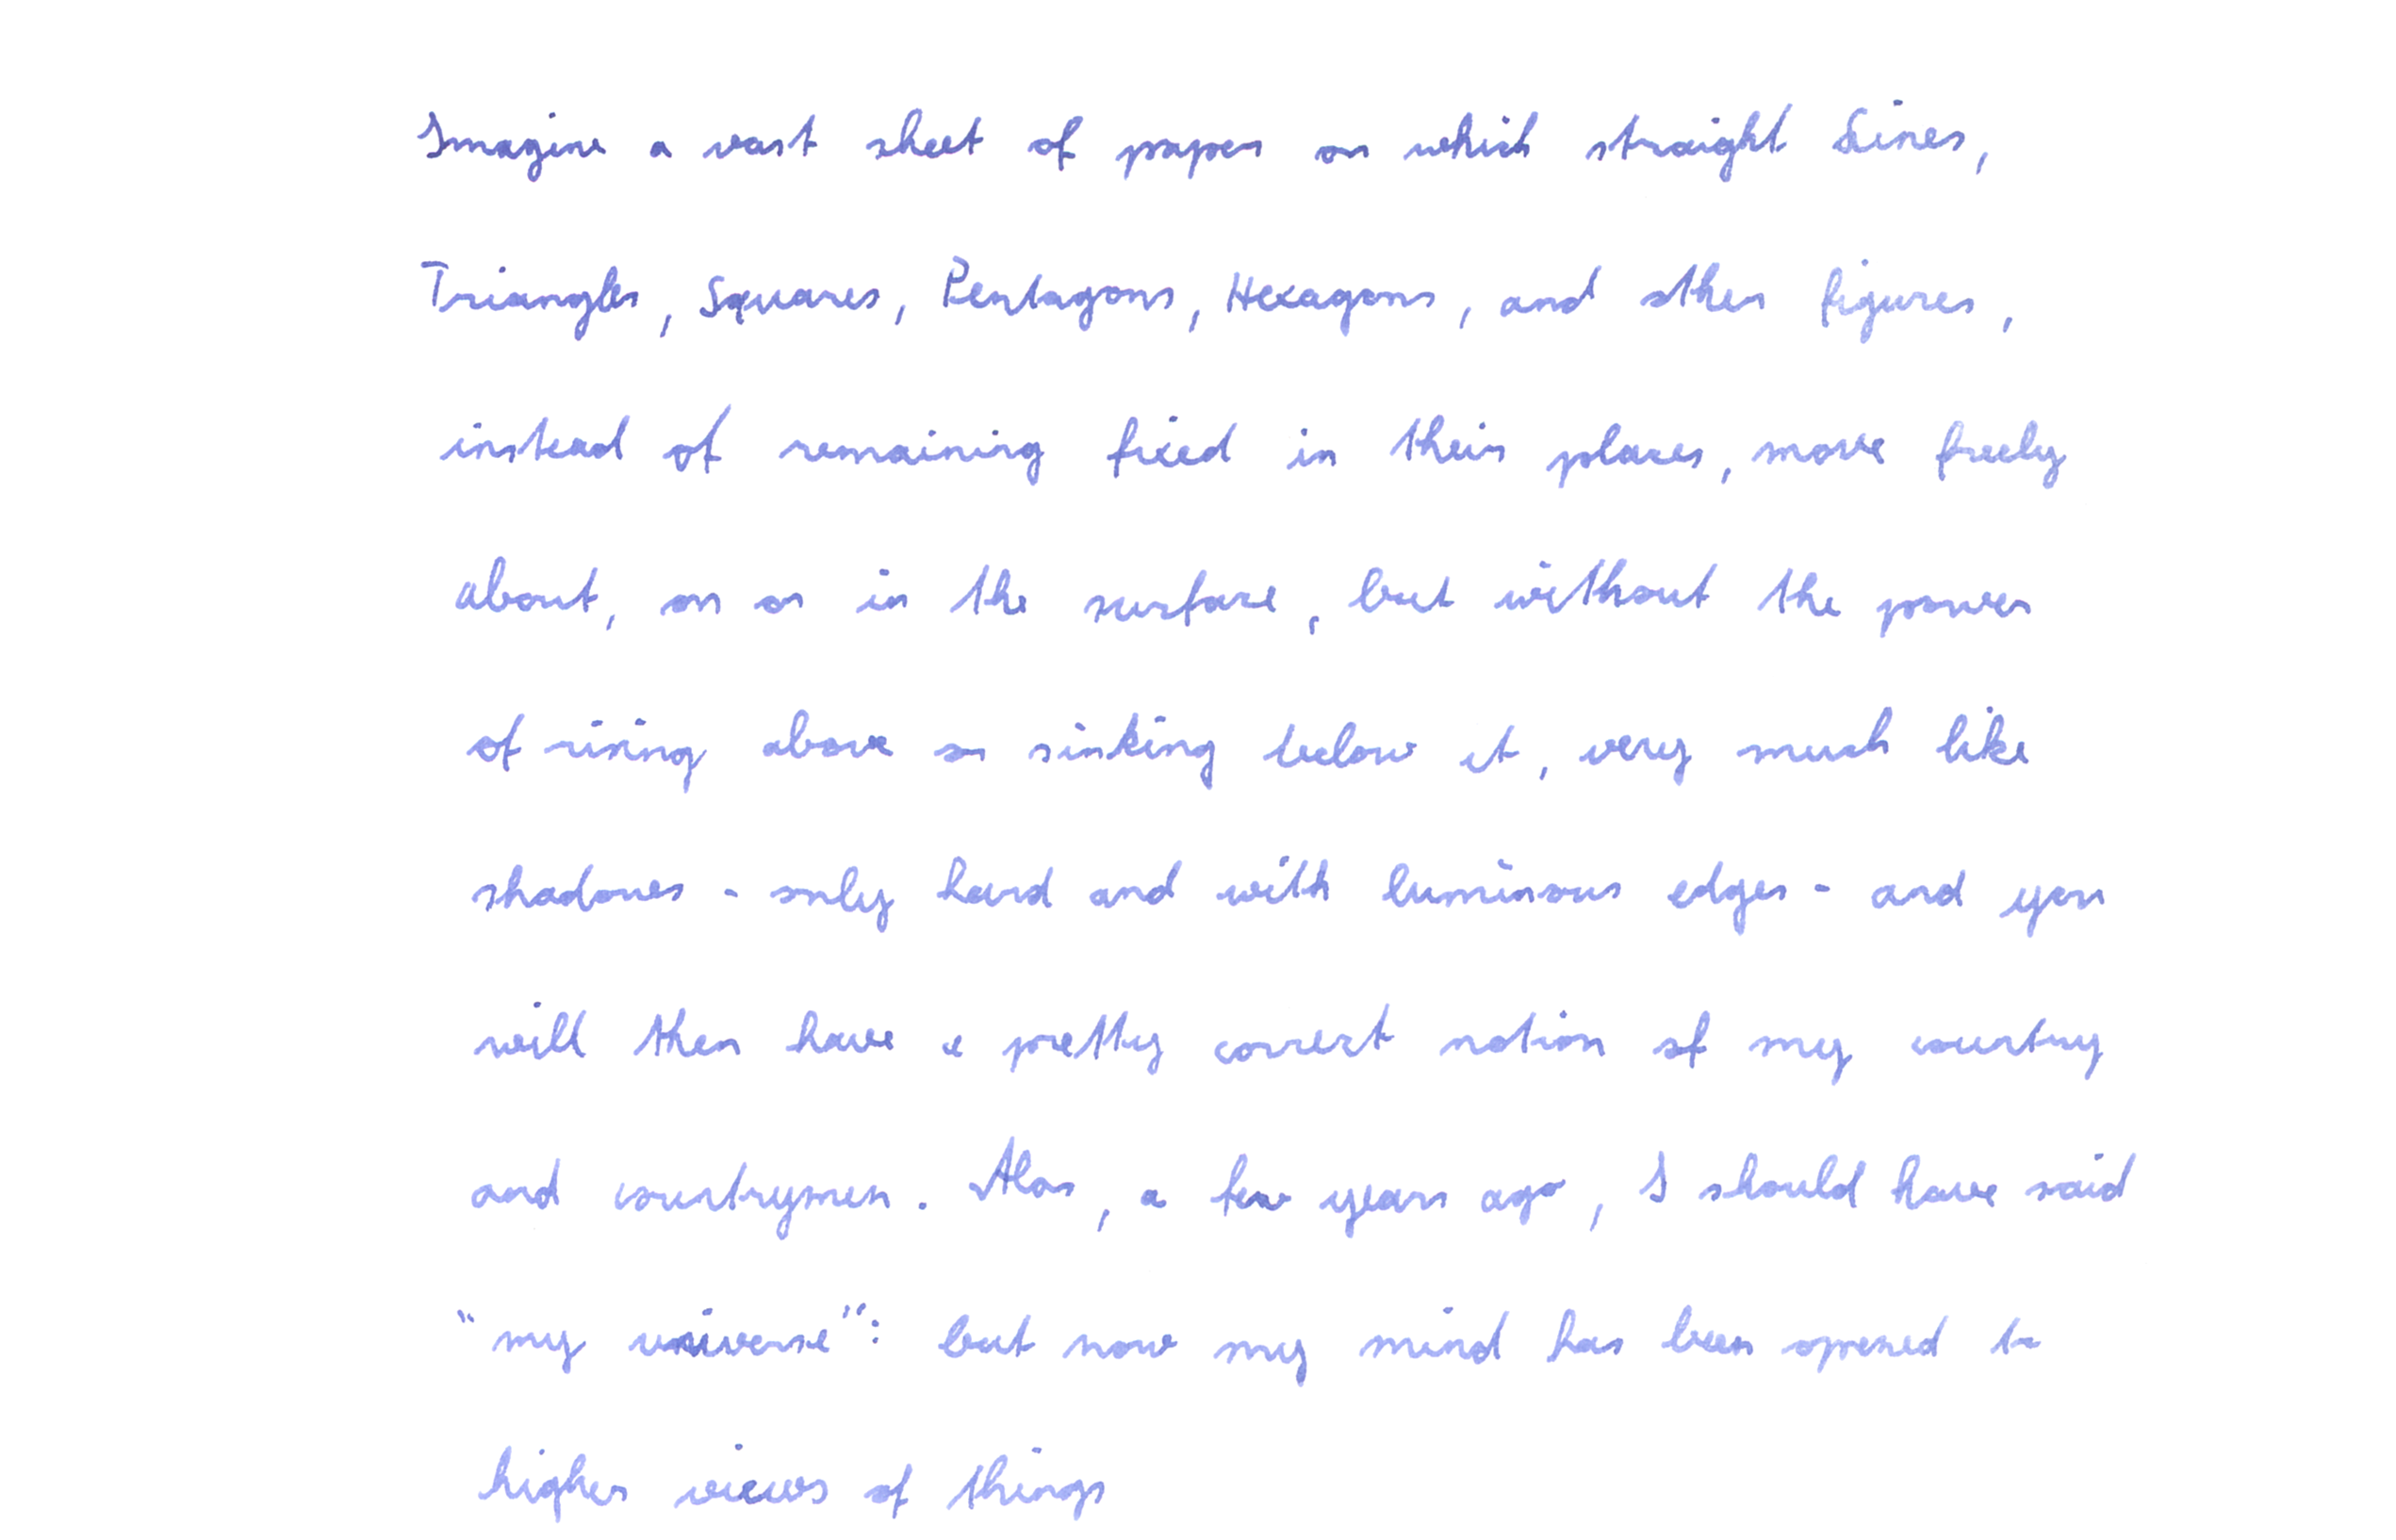 Imagine a vast sheet of paper on which straight Lines,
Triangles, Squares, Pentagons, Hexagons, and other figures,
instead of remaining fixed in their places, move freely
about, on or in the surface, but without the power
of rising above or sinking below it, very much like
shadows - only hard and with luminous edges - and you
will then have a pretty correct notion of my country
and countrymen. Alas, a few years ago, I should have said
"my universe": but now my mind has been opened to
higher views of things